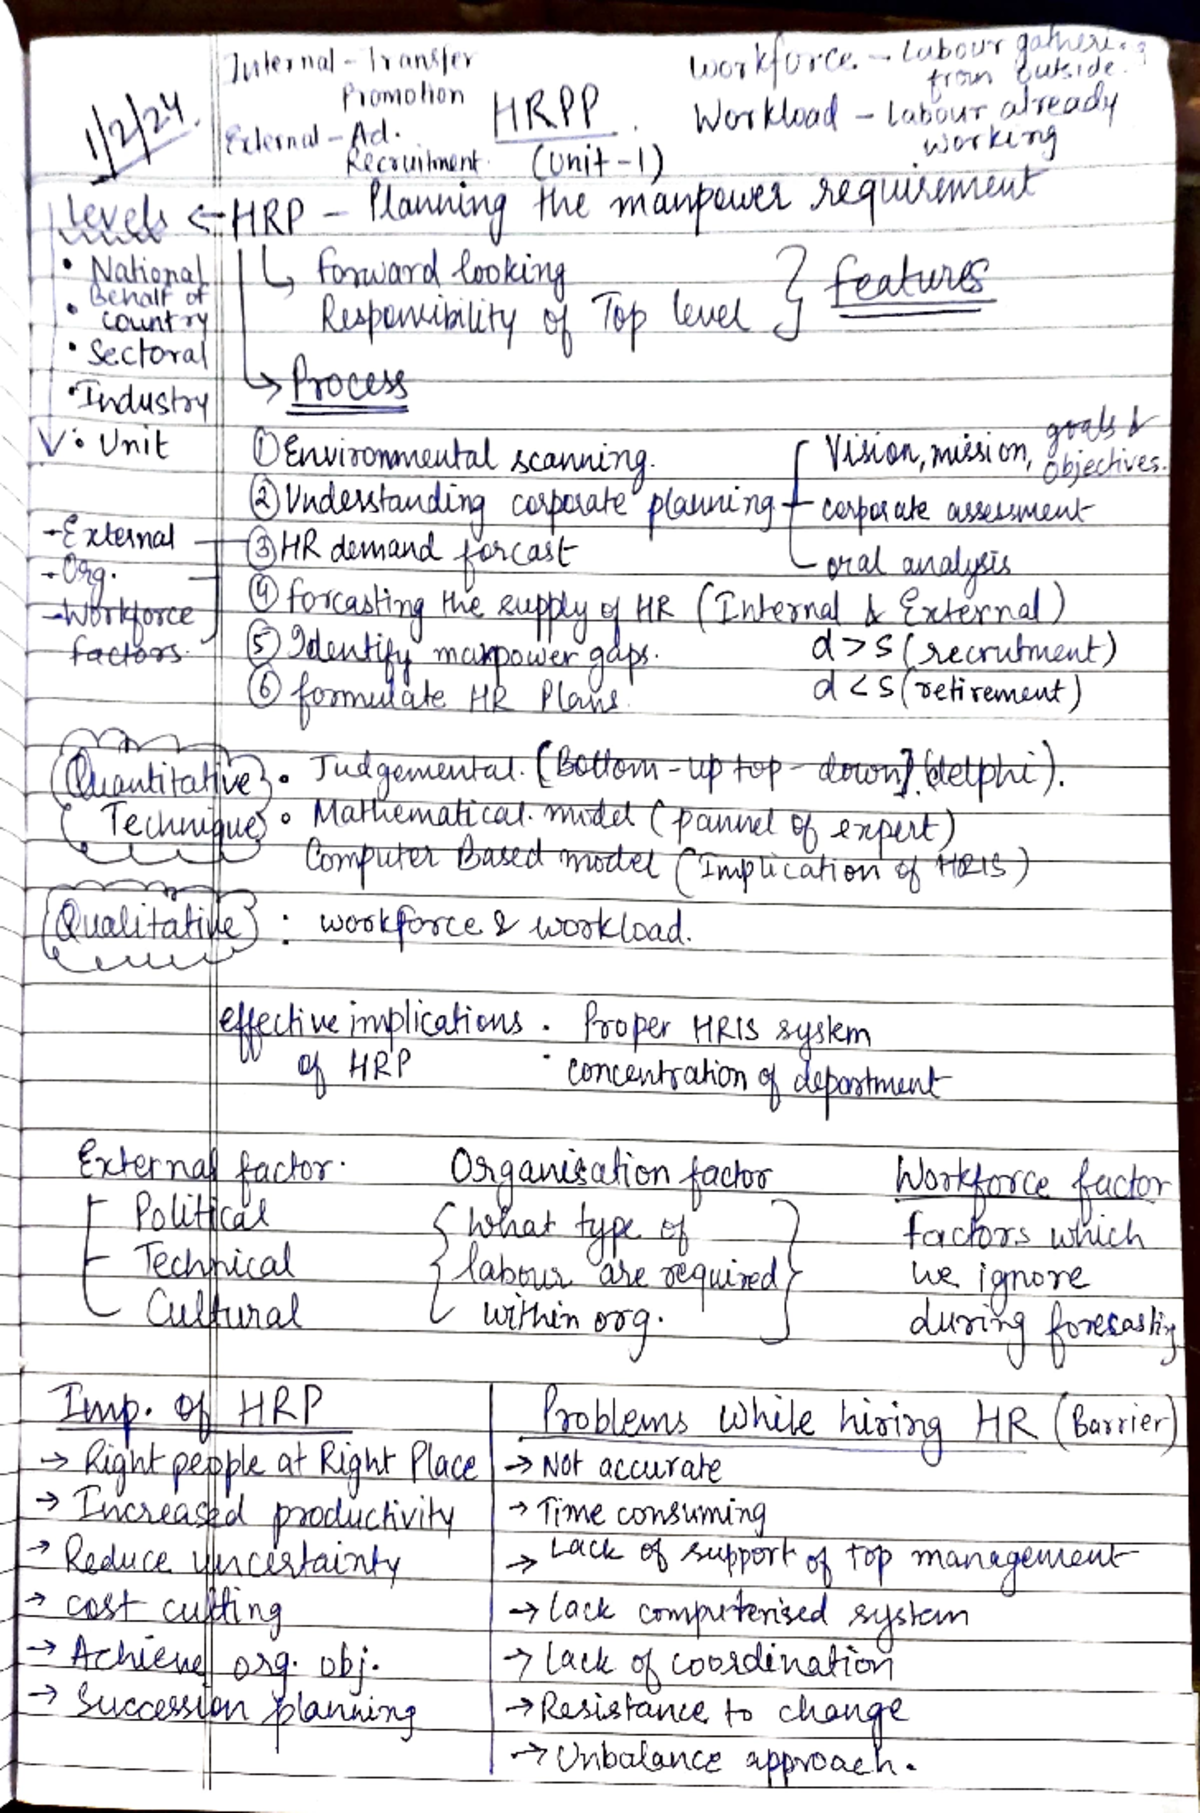 1/2/24.
Internal - Transfer
Promotion
External - Ad.
Recruitment.
HRPP
(Unit-1)
Workforce. - Labour
from outside.
Workload - labour already
working
levels <- HRP - Planning the manpower requirement
• National
Behalf of
• country
• Sectoral
• Industry
• Unit
↳ forward looking
Responsibility of Top level } features
↳ Process
① Environmental scanning.
② Understanding corporate planning
Vision, mission, goals &
objectives.
corporate assessment
oral analysis
- External
- Org.
- Workforce
factors.
③ HR demand forcast
④ forcasting the supply of HR (Internal & External)
⑤ Identify manpower gaps. d > s (recrutment)
⑥ formulate HR Plans. d < s (retirement)
Quantitative • Judgemental. [Bottom-up top-down] (delphi).
Technique • Mathematical. model (pannel of expert)
Computer Based model (Implication of HRIS)
Qualitative : workforce & workload.
effective implications • Proper HRIS system
of HRP • concentration of department
External factor.
Political
Technical
Cultural
Organisation factor
{ what type of
labour are required
within org. }
Workforce factor
factors which
we ignore
during forecasting
Imp. of HRP
→ Right people at Right Place
→ Increased productivity
→ Reduce uncertainty
→ cost cutting
→ Achieve org. obj.
→ Succession planning
Problems while hiring HR (Barrier)
→ Not accurate
→ Time consuming
→ Lack of support of top management
→ lack computerised system
→ lack of coordination
→ Resistance to change
→ Unbalance approach.